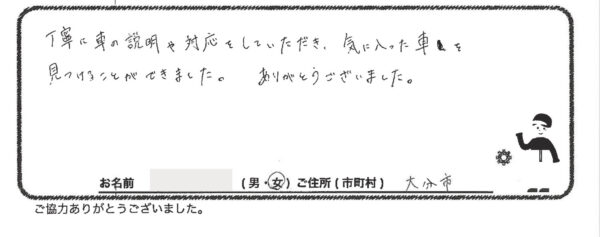 丁寧に車の説明や対応をしていただき、気に入った車を
見つけることができました。 ありがとうございました。
お名前 (男・女) ご住所(市町村) 大分市
ご協力ありがとうございました。